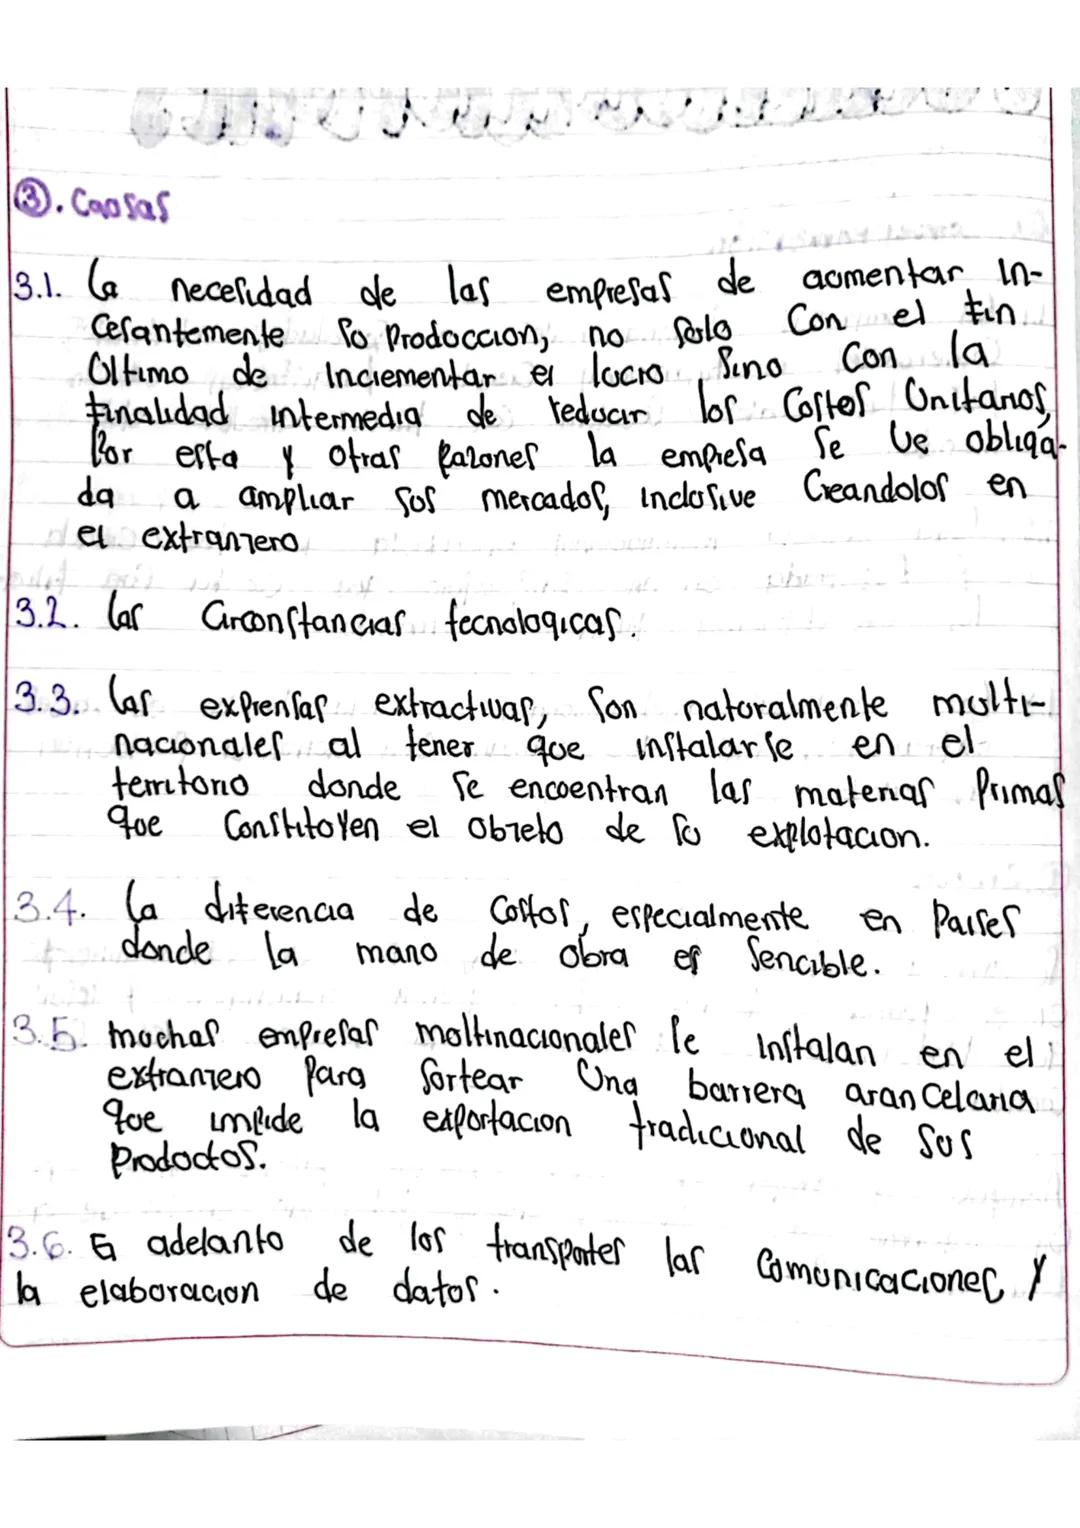 ③. Causas
3.1. La necesidad de las empresas de aumentar in-
cesantemente su produccion, no solo con el fin
ultimo de incrementar el lucro, sino con la
finalidad intermedia de reducir los costos unitarios,
Por esta y otras razones la empresa se ve obliga-
da a ampliar sus mercados, inclusive creandolos en
el extranjero
3.2. las circunstancias tecnologicas.
3.3. las exprensas extractivas, son naturalmente multi-
nacionales al tener que instalarse en el
territorio donde se encuentran las materias primas
que constituyen el objeto de su explotacion.
3.4. La diferencia de costos, especialmente en Paises
donde la mano de obra es sencible.
3.5. muchas empresas multinacionales se instalan en el
extranjero para sortear una barrera arancelaria
que impide la exportacion tradicional de sus
Productos.
3.6. El adelanto de los transportes las comunicaciones y
la elaboracion de datos.